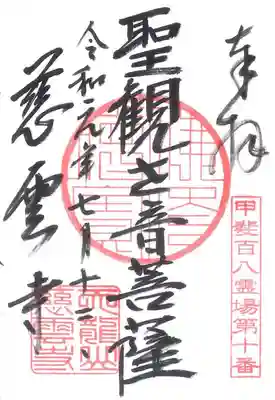 奉拝
甲斐百八霊場第十番
聖観世音菩薩
令和元年七月十二日
慈雲寺
天龍山
慈雲寺